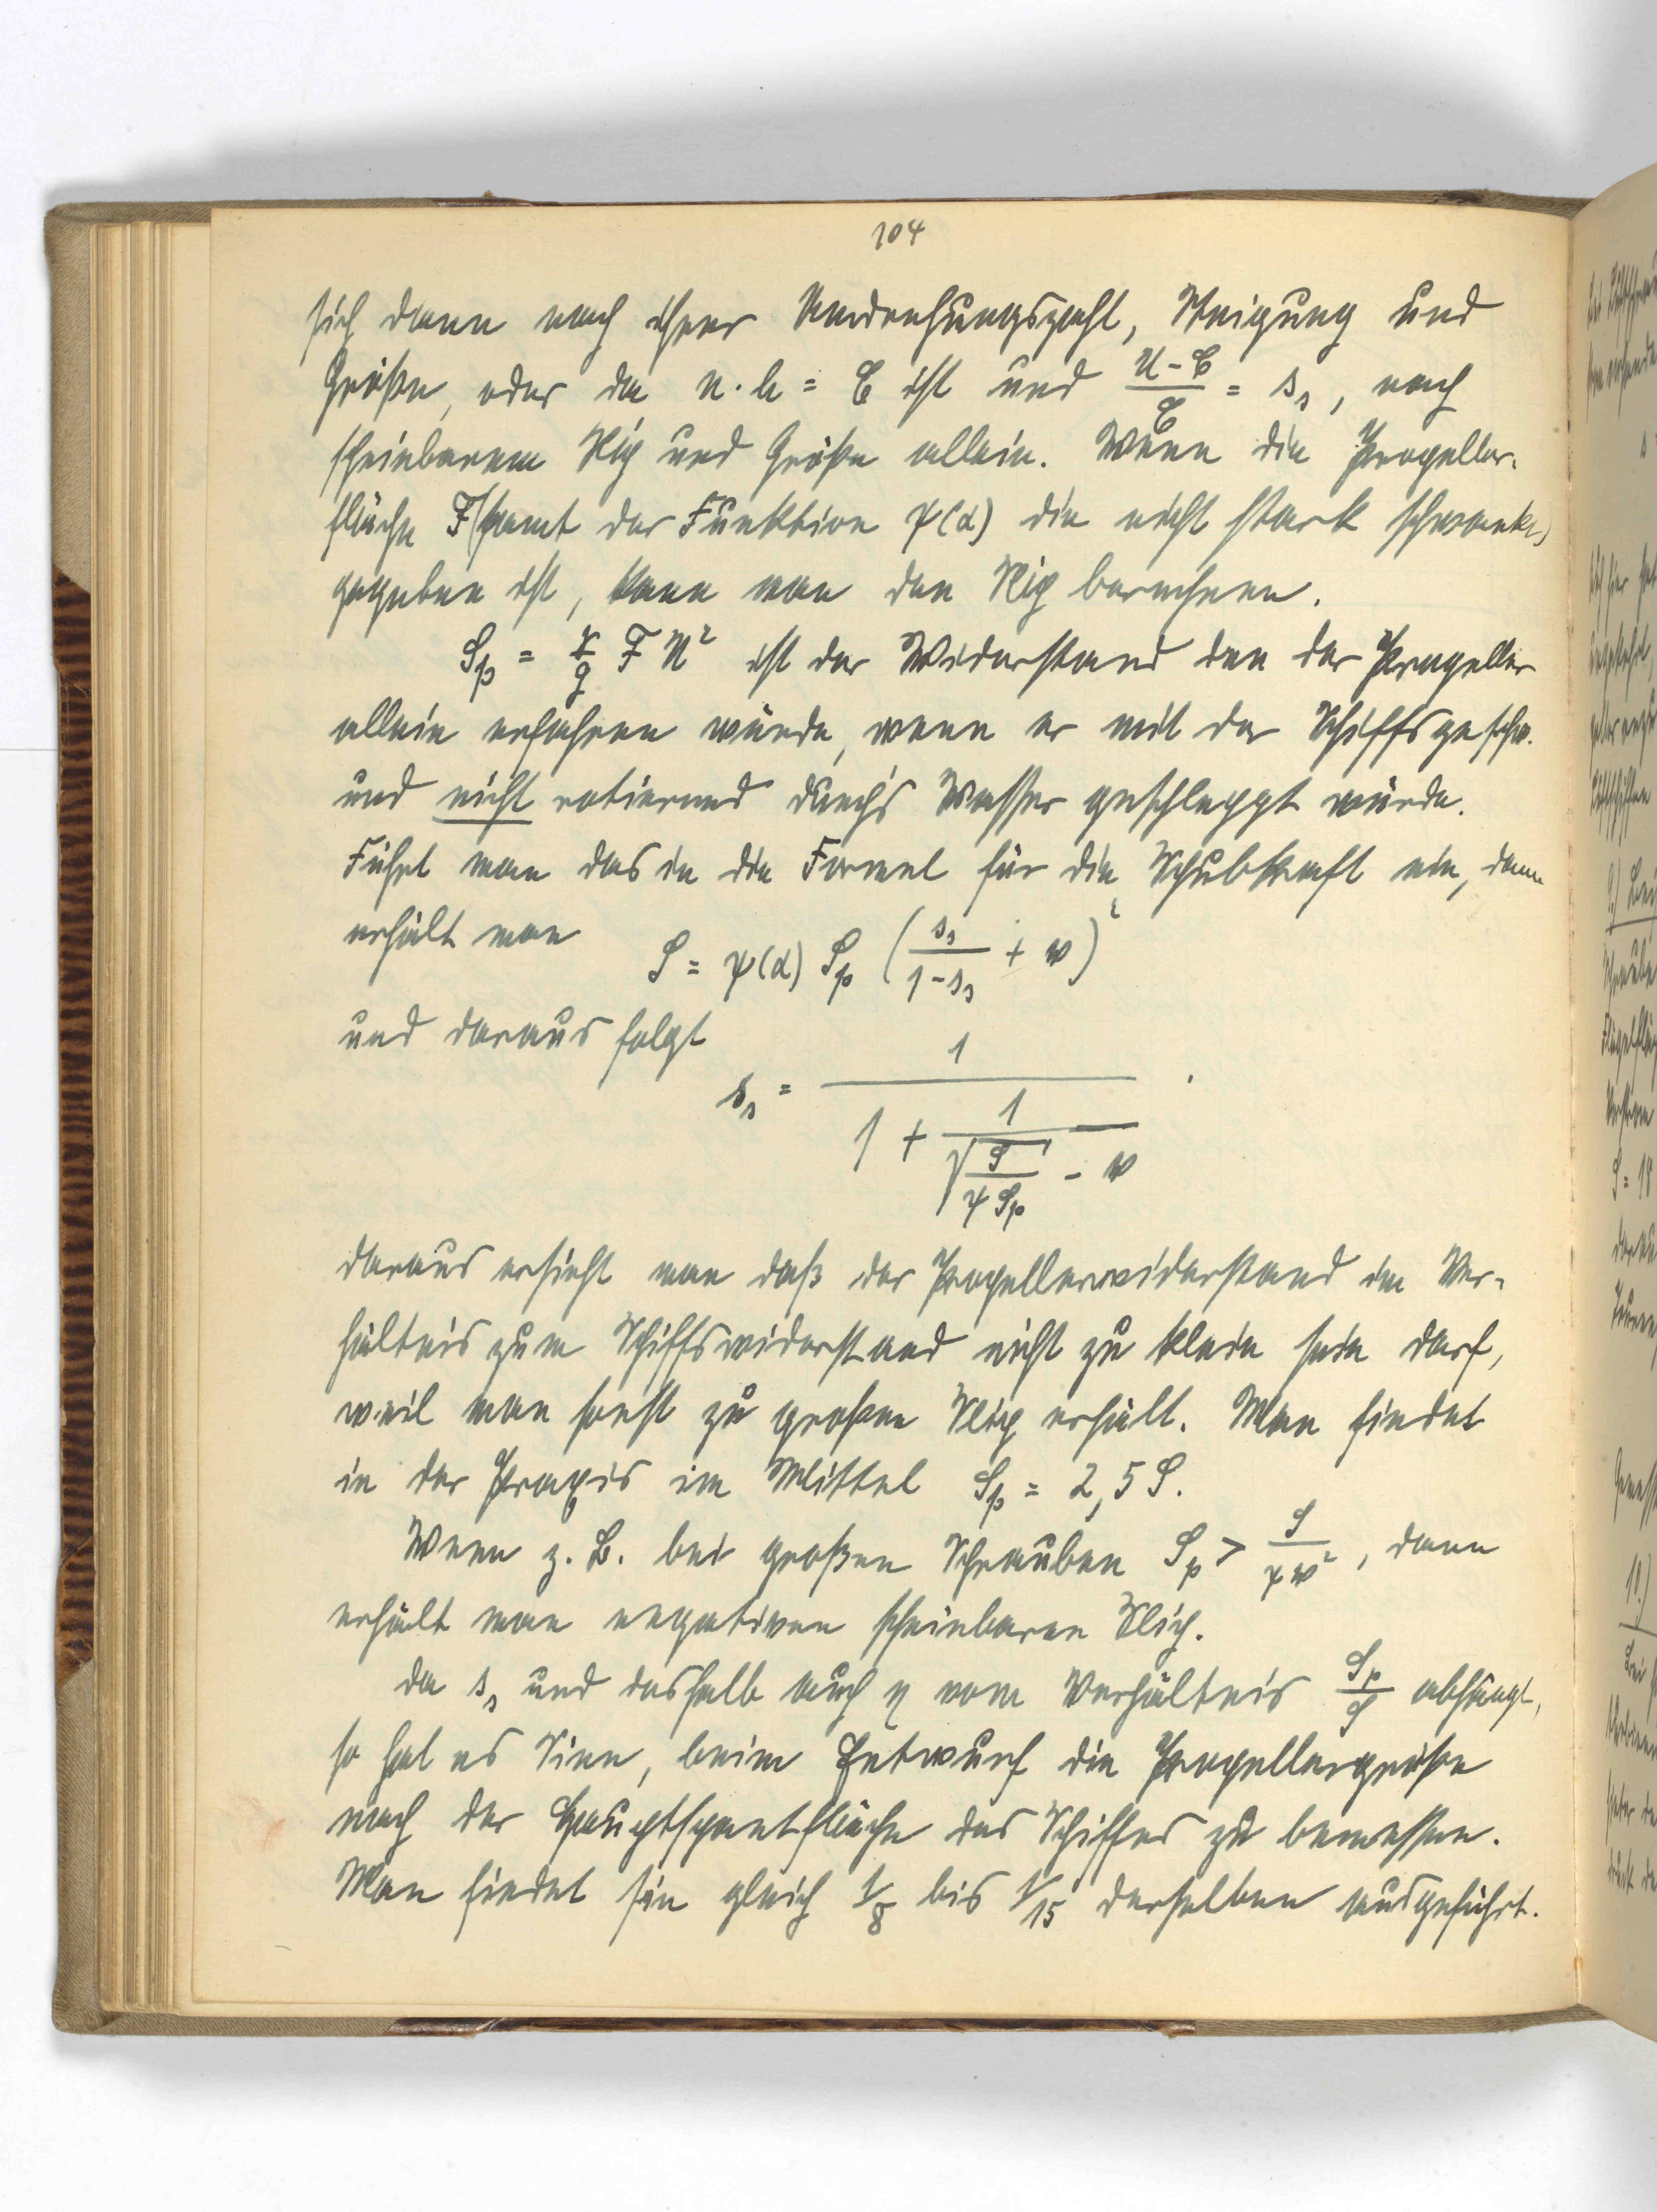 104
sich dann nach ihrer Umdrehungszahl, Steigung und
Größe, oder da n·h = C ist und (U-C)/C = s₁, nach
scheinbarem Slip und Größe allein. Wenn die Propeller-
fläche F (samt der Funktion ψ(α) die nicht stark schwankt)
gegeben ist, kann man den Slip berechnen.
Sp = γ/g F U² ist der Widerstand den der Propeller
allein erfahren würde, wenn er mit der Schiffsgeschw.
und nicht rotierend durch's Wasser geschleppt würde.
Führt man das in die Formel für die Schubkraft ein, dann
erhält man S = ψ(α) Sp (s₁/(1-s₁) + w)²
und daraus folgt
s₁ = 1/(1 + 1/(√(S/(ψ Sp)) - w)).
daraus ersieht man daß der Propellerwiderstand im Ver-
hältnis zum Schiffswiderstand nicht zu klein sein darf,
weil man sonst zu großen Slip erhält. Man findet
in der Praxis im Mittel Sp = 2,5 S.
Wenn z. B. bei großen Schrauben Sp > S/(ψw²), dann
erhält man negativen scheinbaren Slip.
da s₁ und deshalb auch η vom Verhältnis Sp/S abhängt,
so hat es Sinn, beim Entwurf die Propellergröße
nach der Hauptspantfläche des Schiffes zu bemessen.
Man findet sie gleich 1/8 bis 1/15 derselben ausgeführt.